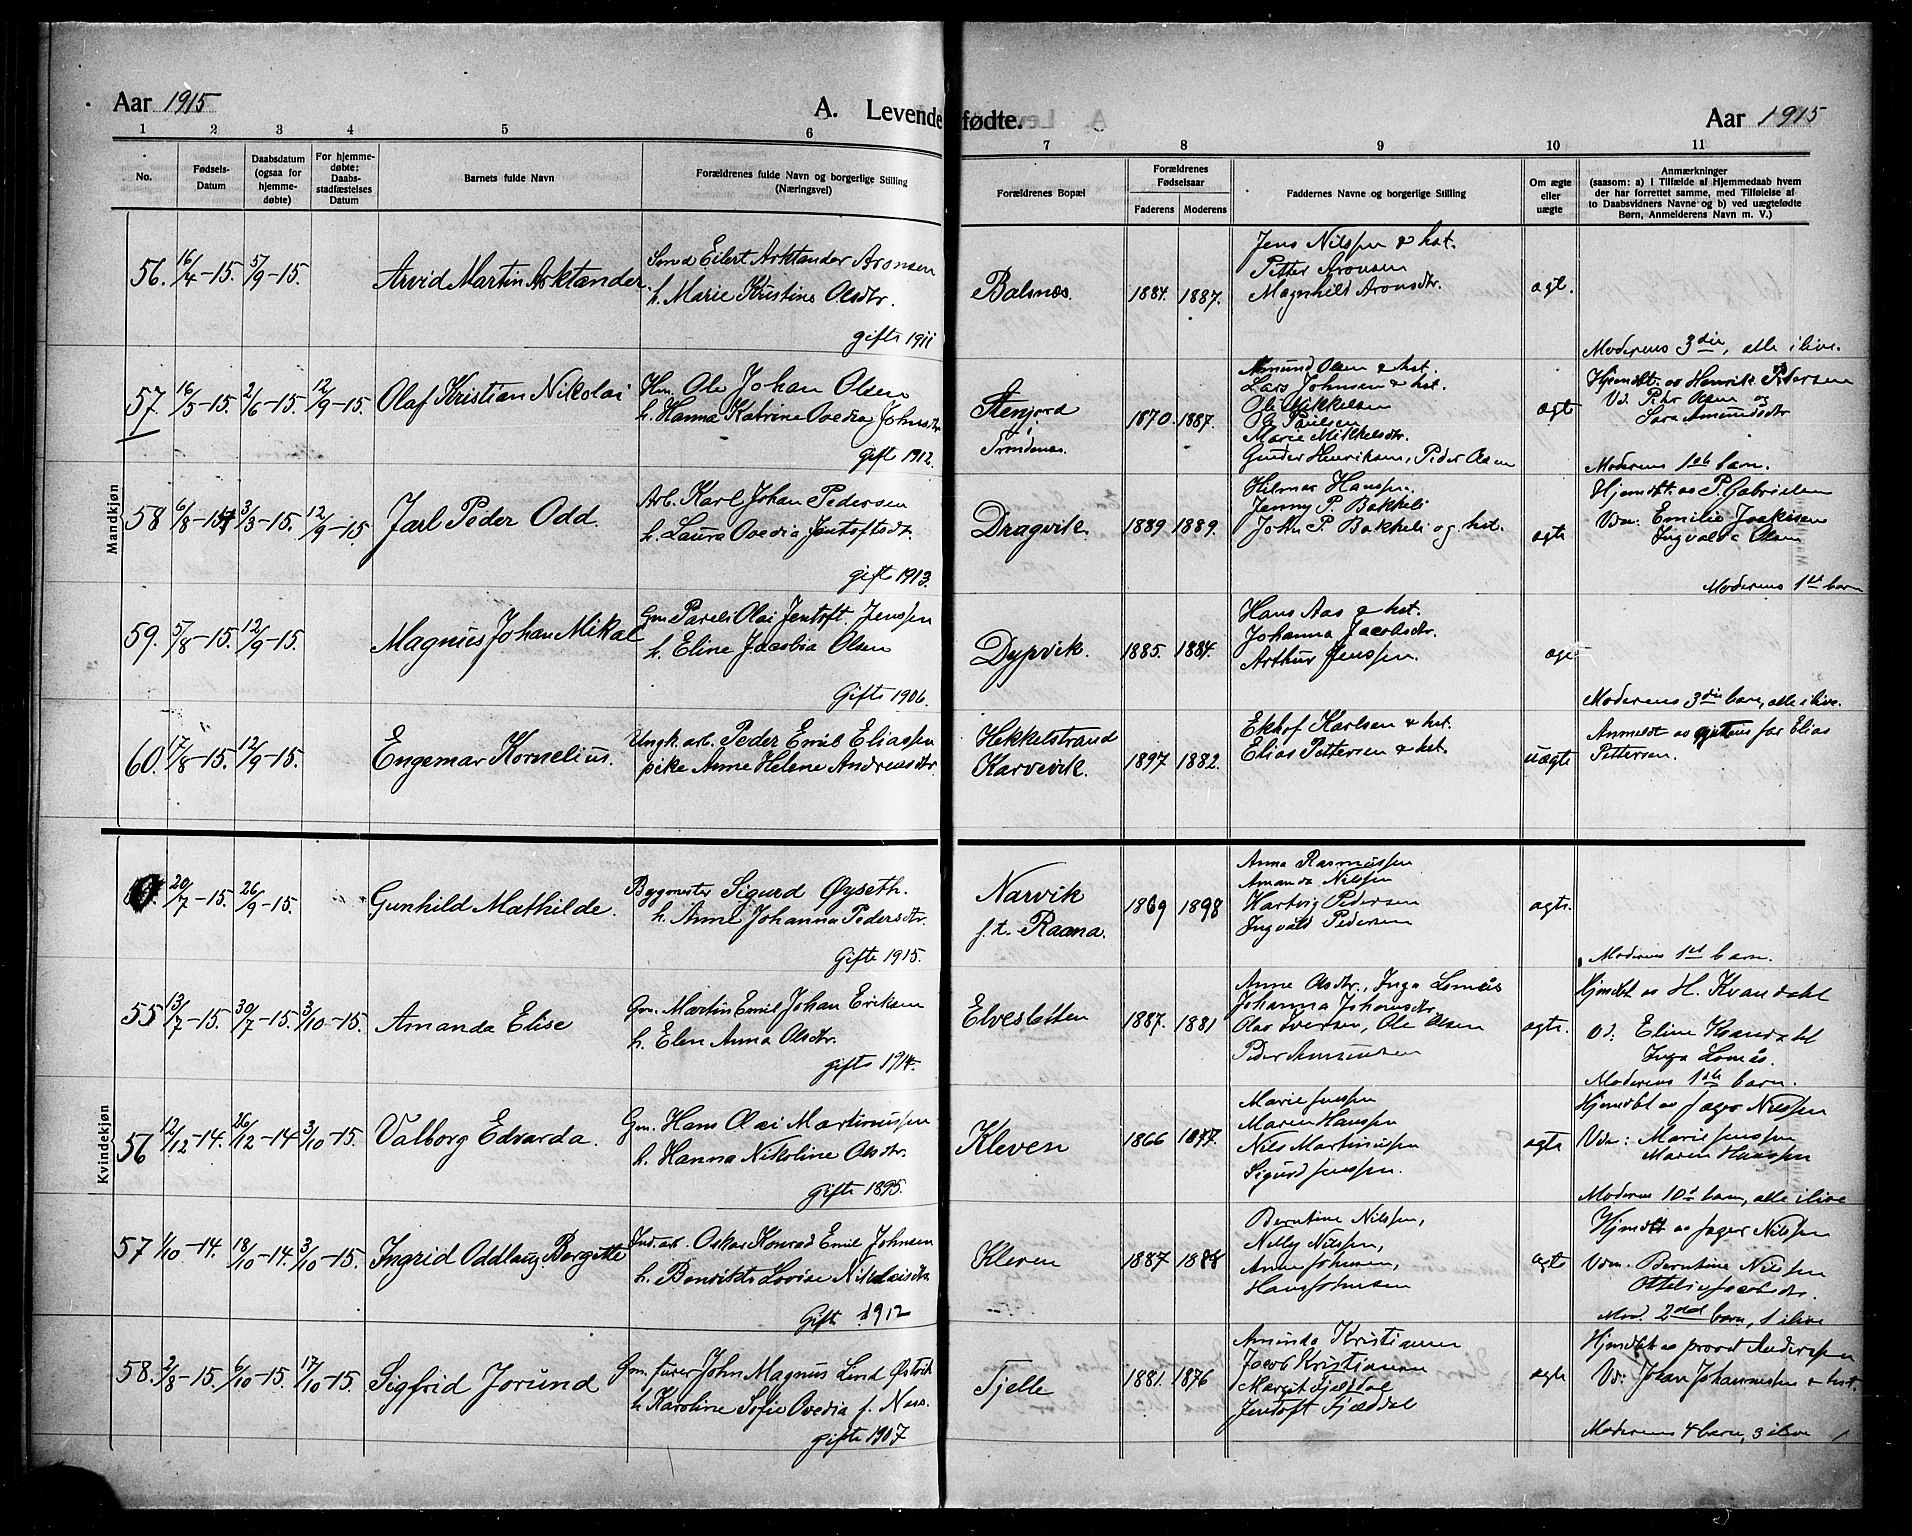 Aar 1915
A. Levendefødte.
Aar 1915
1 2 3 4 5 6 7 8 9 10 11
No.
Fødsels-Datum
Daabsdatum (ogsaa for hjemme-døbte)
For hjemme-døbte: Daabs-stadfæstelses Datum
Barnets fulde Navn
Forældrenes fulde Navn og borgerlige Stilling (Næringsvei)
Forældrenes Bopæl
Forældrenes Fødselsaar
Faderens Moderens
Faddernes Navne og borgerlige Stilling
Om ægte eller uægte
Anmærkninger
(saasom: a) i Tilfælde af Hjemmedaab hvem
der har forrettet samme, med Tilføielse af
to Daabsvidners Navne og b) ved uægtefødte
Børn, Anmelderens Navn m. V.)
Mandkjøn
56. 16/4-15. 5/9-15.
Arvid Martin Arktander.
Smed Eilert Arktander Aronsen
h. Marie Kristine Olsdtr.
gifte 1911
Balsnes.
1884. 1887.
Jens Nilssen & hst.
Petter Aronsen
Magnhild Aronsdtr.
ægt.
Moderens 3die, alle ilive.
57 16/5-15. 2/6-15. 12/9-15.
Olaf Kristian Nikolai
Hm. Ole Johan Olsen
h. Hanna Katrine Ovedia Johnsdtr
gift 1912.
Stenjord
Trondenes.
1870. 1887.
Amund Olsen & hst.
Lars Johnsen & hst.
Ole Mikkelsen
Ole Paulsen
Marie Mikkelsdtr.
Henriksen, Peder Olsen
ægte
Hjemdbt. av Henrik Pedersen
Vd. Petr Olsen og
Sara Amundsdtr
Moderens 1ste barn.
58 6/8-14 3/3-15. 12/9-15.
Jarl Peder Odd.
Arb. Karl Johan Pedersen
h. Laura Ovedia Jentoftsdt.
gifte 1913.
Dragvik.
1889 1889.
Hilmar Hanssen.
Jenny P. Bakkeli
Joh. P. Bakkeli og hst.
ægte
Hjemdbt av P. Gabrielsen
Vdn: Emilie Joakimsen
Ingvalda Olsen
Moderens 1st barn
59. 5/8-15. 12/9-15.
Magnus Johan Mikal
Gm Pareli Olai Jentoft Jenssen
h. Eline Jacobia Olsen
Gifte 1906.
Dypvik.
1885. 1884.
Hans Aas & hst.
Johanna Jacobsdtr.
Arthur Jenssen.
ægt
Moderens 3die barn, alle ilive.
60. 17/8-15. 12/9-15.
Engemar Kornelius.
Ungk. arb. Peder Emil Eliassen
pike Anne Helene Andreasdtr.
Hekkelstrand
Karvevik.
1897 1882.
Ekhof Karlsen & hst.
Elias Pettersen & hst.
uægte
Anmeldt av guttens far Elias
Pettersen.
Kvindekjøn
20/7-15. 26/9-15.
Gunhild Mathilde.
Bygmester Sigurd Øyseth.
h. Anne Johanna Pedersdtr.
Gifte 1915.
Narvik
f. t. Raana.
1869 1898
Anna Rasmussen
Amanda Nilssen
Hartvig Pedersen
Ingvald Pedersen
ægte.
Moderens 1st barn.
55 13/7-15. 30/7-15. 3/10-15.
Amanda Elise
Gm. Martin Emil Johan Eriksen
h. Elen Anna Olsdtr.
gifte 1914.
Elvesletten
1887. 1881
Anne Olsdtr., Inga Lomås
Johanna Johansdtr.
Olav Iversen, Ole Olsen
Peder Amundsen
ægte.
Hjemdbt av H. Kvandahl
Vd: Eline Kvandahl
Inga Lomås.
Moderens 1ste barn.
56 12/12-14. 26/12-14 3/10-15.
Valborg Edvarda.
Gm. Hans Olai Martinussen
h. Hanna Nikoline Olsdtr.
gifte 1895.
Kleven
1866 1877
Marie Jenssen
Maren Hanssen
Nils Martinussen
Sigurd Jenssen.
ægte
Hjemdbt av Jager Nilssen
Vdn: Marie Jenssen
Maren Hanssen
Moderens 10d barn, alle ilive
57 1/10-14. 18/10-14. 3/10-15.
Ingrid Oddlaug Borgitte
Ind. arb. Oskar Konrad Emil Johnsen
h. Benedikte Lovise Nikolaisdtr
Gifte 1912
Kleven
1887 1888
Berntine Nilssen,
Nelly Nilssen,
Anne Johnsen,
Hans Johnsen
ægte
Hjemdbt av Jager Nilssen
Vdn. Berntine Nilssen
Ottelie Jacobsdtr.
Mod. 2det barn, 1 ilive
58. 2/8-15. 6/10-15. 17/10-15.
Sigfrid Jorund
Gm. furer John Magnus Lind Østvik
h. Karoline Sofie Ovedia f. Næss.
gifte 1907
Tjelle
1881. 1876
Aminda Kristiansen
Jacob Kristiansen
Margit Fjelddal
Jentoft Fjelddal
ægte
Hjemdbt av provst Anderssen
Vd: Johan Johannessen & hst.
Moderens 4 barn, 3 ilive